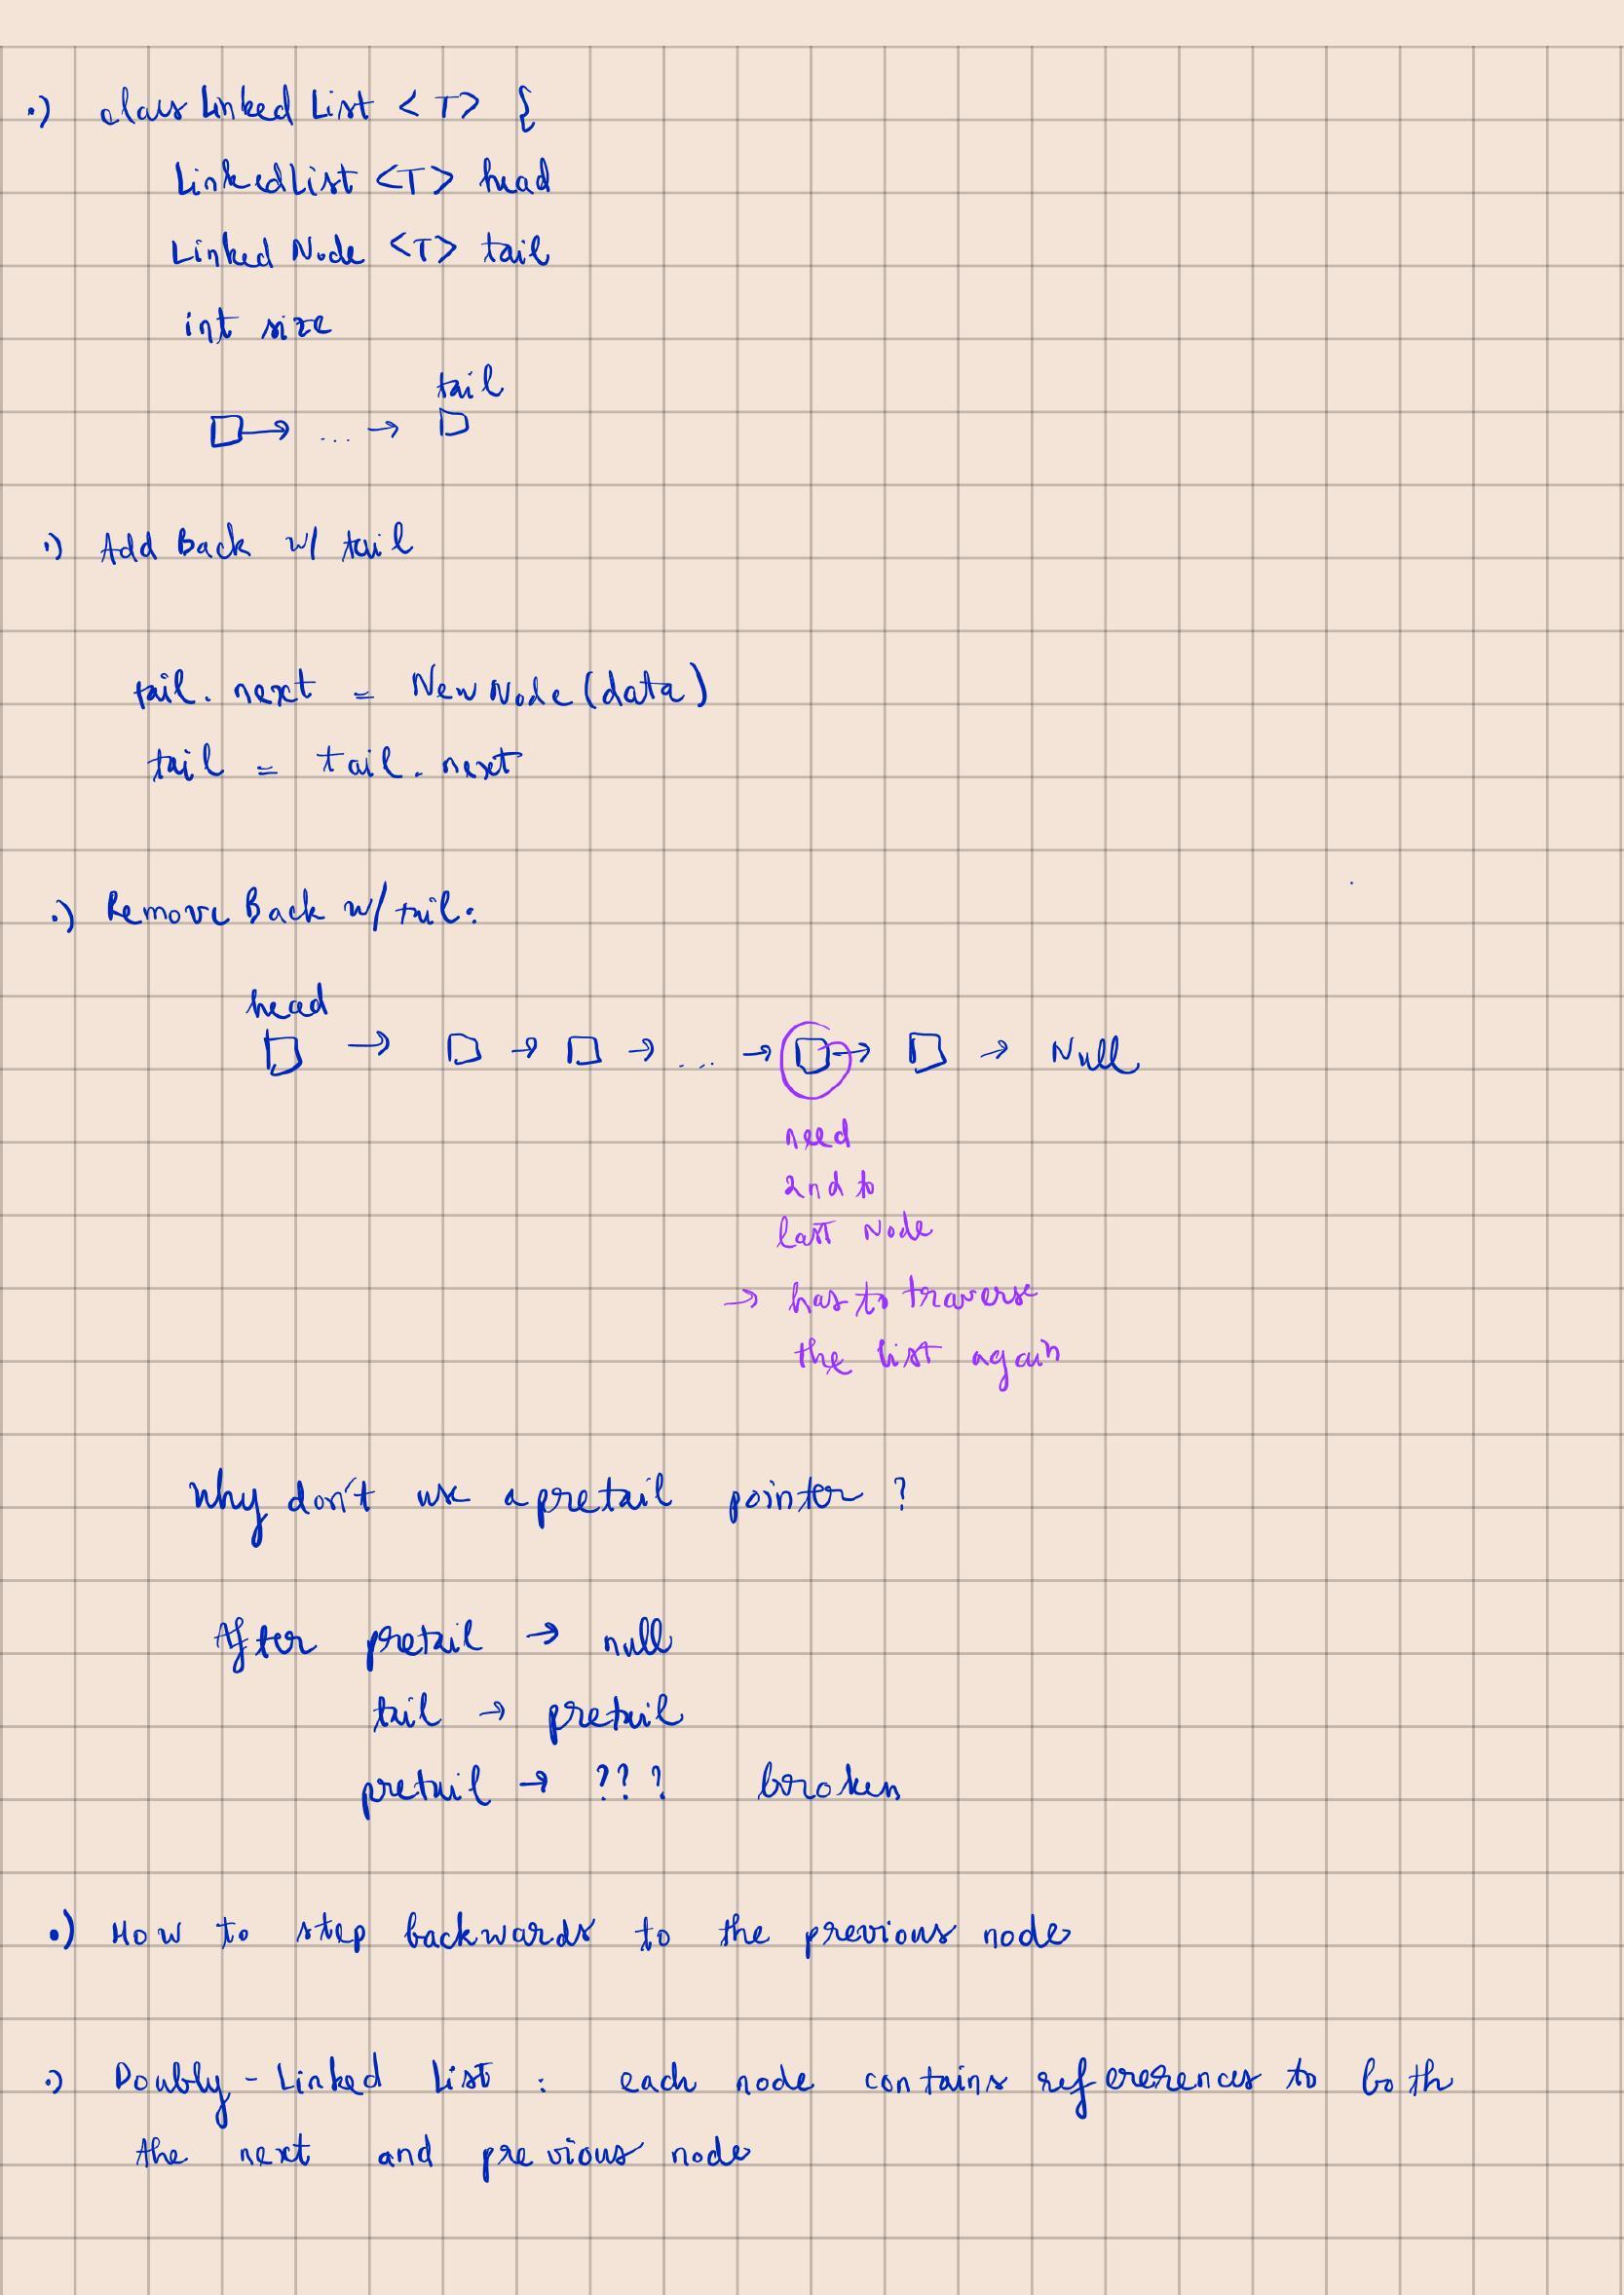 •) class Linked List <T> {
LinkedList <T> head
Linked Node <T> tail
int size
tail
→ ... →
•) Add Back w/ tail
tail. next = New Node (data)
tail = tail. next
•) Remove Back w/ tail:
head
→ → → ... → → → Null
need
2nd to
last Node
→ has to traverse
the list again
Why don't use a pretail pointer ?
After pretail → null
tail → pretail
pretail → ??? broken
•) How to step backwards to the previous node
•) Doubly-Linked List : each node contains references to both
the next and previous node